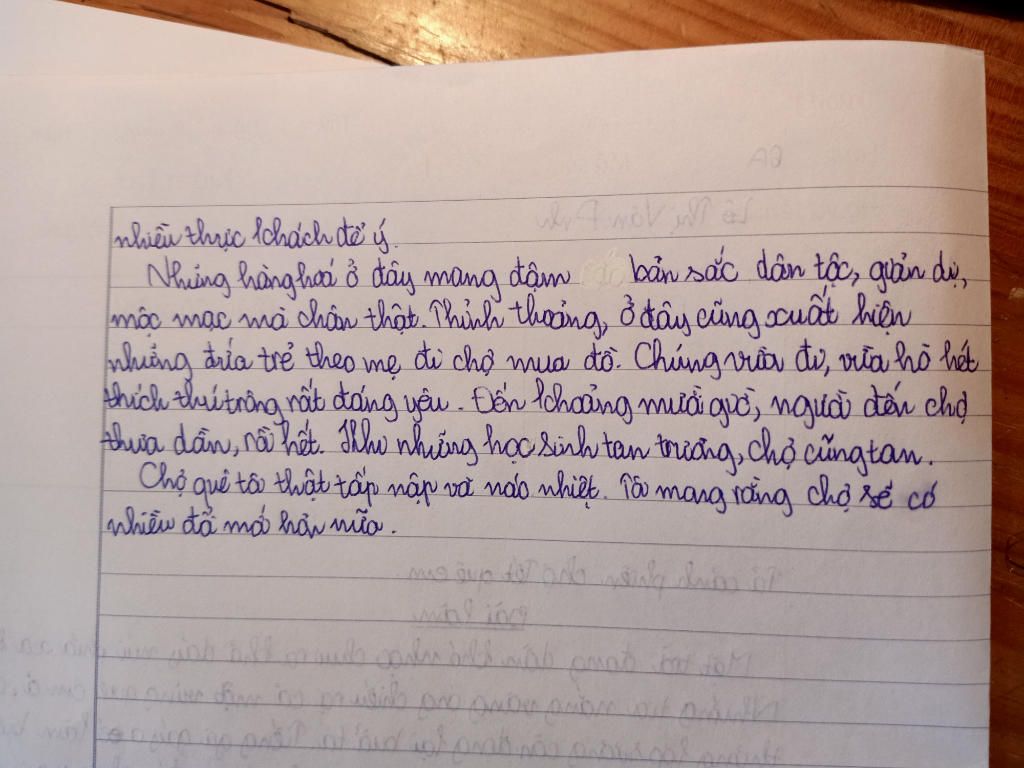 nhiều thực khách để ý.
Những hàng hoá ở đây mang đậm bản sắc dân tộc, giản dị,
mộc mạc mà chân thật. Thỉnh thoảng, ở đây cũng xuất hiện
những đứa trẻ theo mẹ đi chợ mua đồ. Chúng vừa đi, vừa hò hét
thích thú trông rất đáng yêu. Đến khoảng mười giờ, người đến chợ
thưa dần, rồi hết. Khi những học sinh tan trường, chợ cũng tan.
Chợ quê tôi thật tấp nập và náo nhiệt. Tôi mang rằng chợ sẽ có
nhiều đổi mới hơn nữa.